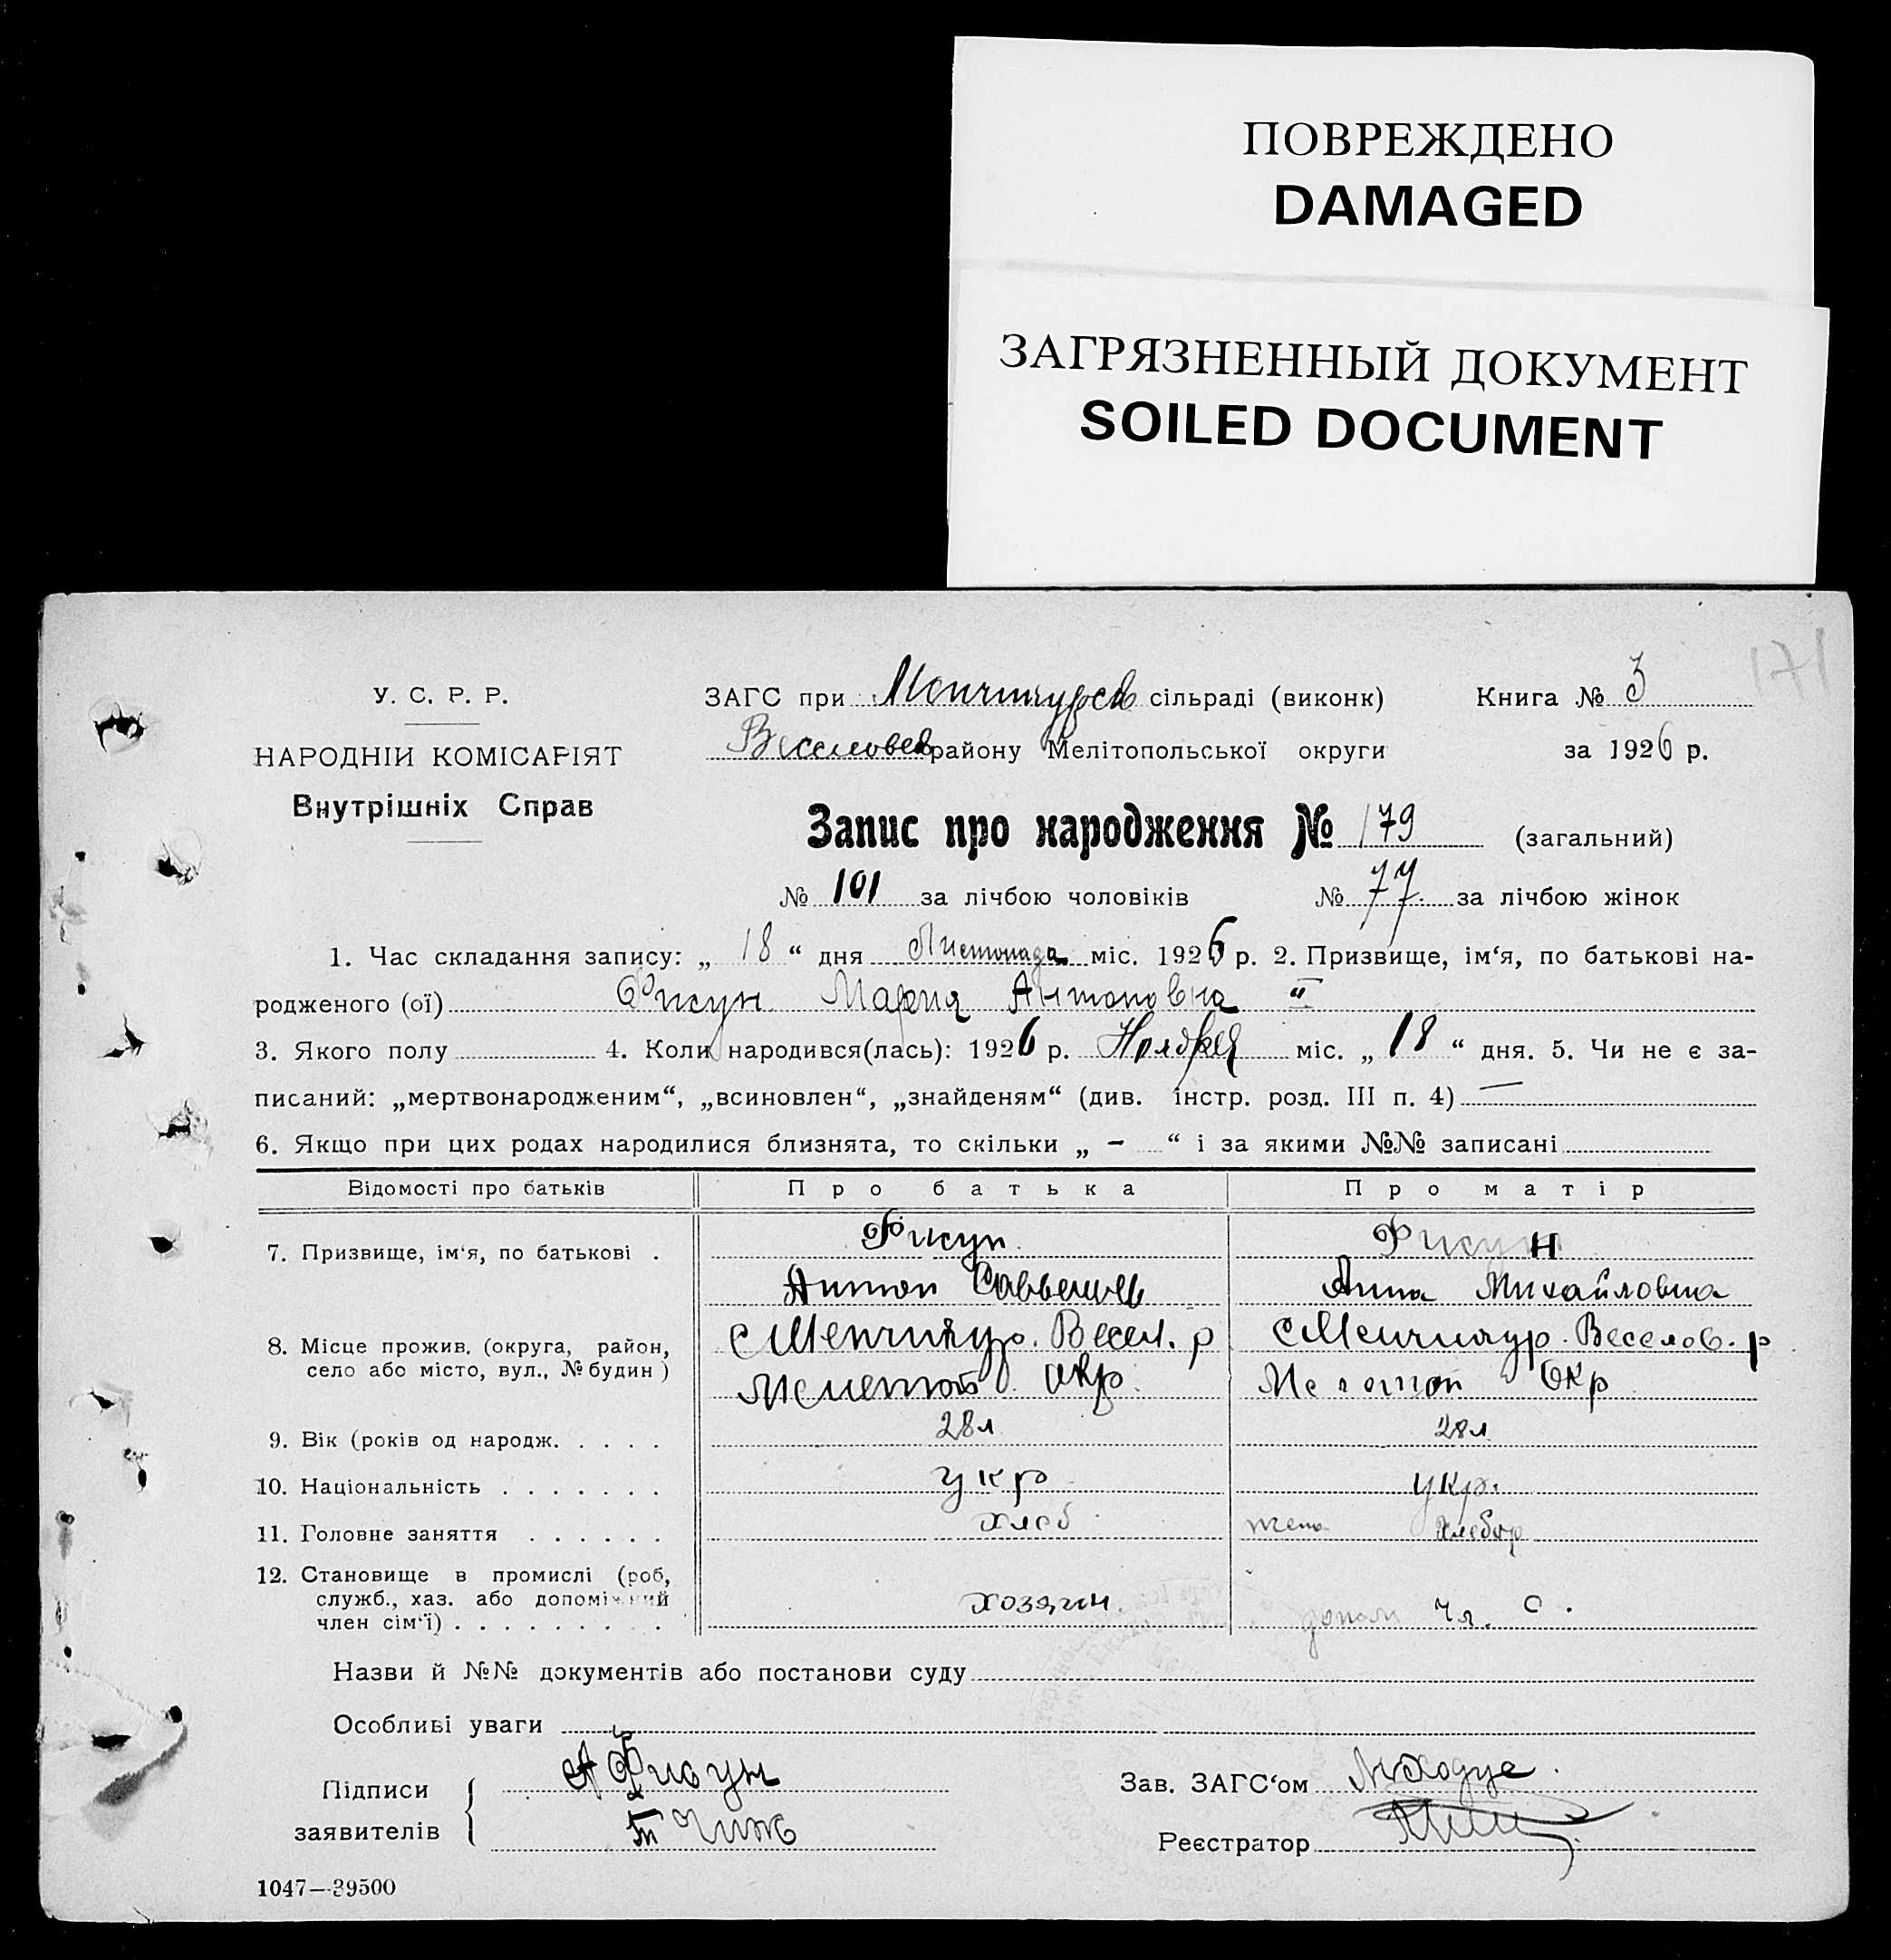 ПОВРЕЖДЕНО
DAMAGED
ЗАГРЯЗНЕННЫЙ ДОКУМЕНТ
SOILED DOCUMENT
171
У. С. Р. Р.
НАРОДНІЙ КОМІСАРІЯТ
Внутрішніх Справ
ЗАГС при Менчикурсв сільраді (виконк) Книга № 3
Веселовсв району Мелітопольської округи за 1926 р.
Запис про народження № 179 (загальний)
№ 101 за лічбою чоловіків № 77. за лічбою жінок
1. Час складання запису: „ 18 “ дня Листопада міс. 1926 р. 2. Призвище, ім‘я, по батькові на-
родженого (ої) Фисун Мария Антоновна
3. Якого полу 4. Коли народився(лась): 1926 р. Ноября міс. „ 18 “ дня. 5. Чи не є за-
писаний: „мертвонародженим“, „всиновлен“, „знайденям“ (див. інстр. розд. III п. 4) —
6. Якщо при цих родах народилися близнята, то скільки „ - “ і за якими №№ записані
Відомості про батьків Про батька Про матір
7. Призвище, ім‘я, по батькові . Фисун Фисун
Антон Анна Михайловна
8. Місце прожив. (округа, район, село або місто, вул., № будин ) с Менчикур. Весел. р с Менчикур. Веселов. р
Мелитоп окр. Мелитоп Окр
9. Вік (років од народж. . . . . 28л 28л
10. Національність . . . . . . . укр укр.
11. Головне заняття . . . . . . хлеб жена хлебор
12. Становище в промислі (роб, служб., хаз. або допоміжний член сім‘ї) . . . . . . . . . хозяин допом чл. с.
Назви й №№ документів або постанови суду
Особливі уваги
Підписи заявителів А Фисун Зав. ЗАГС‘ом
Чиж Реєстратор
1047—39500